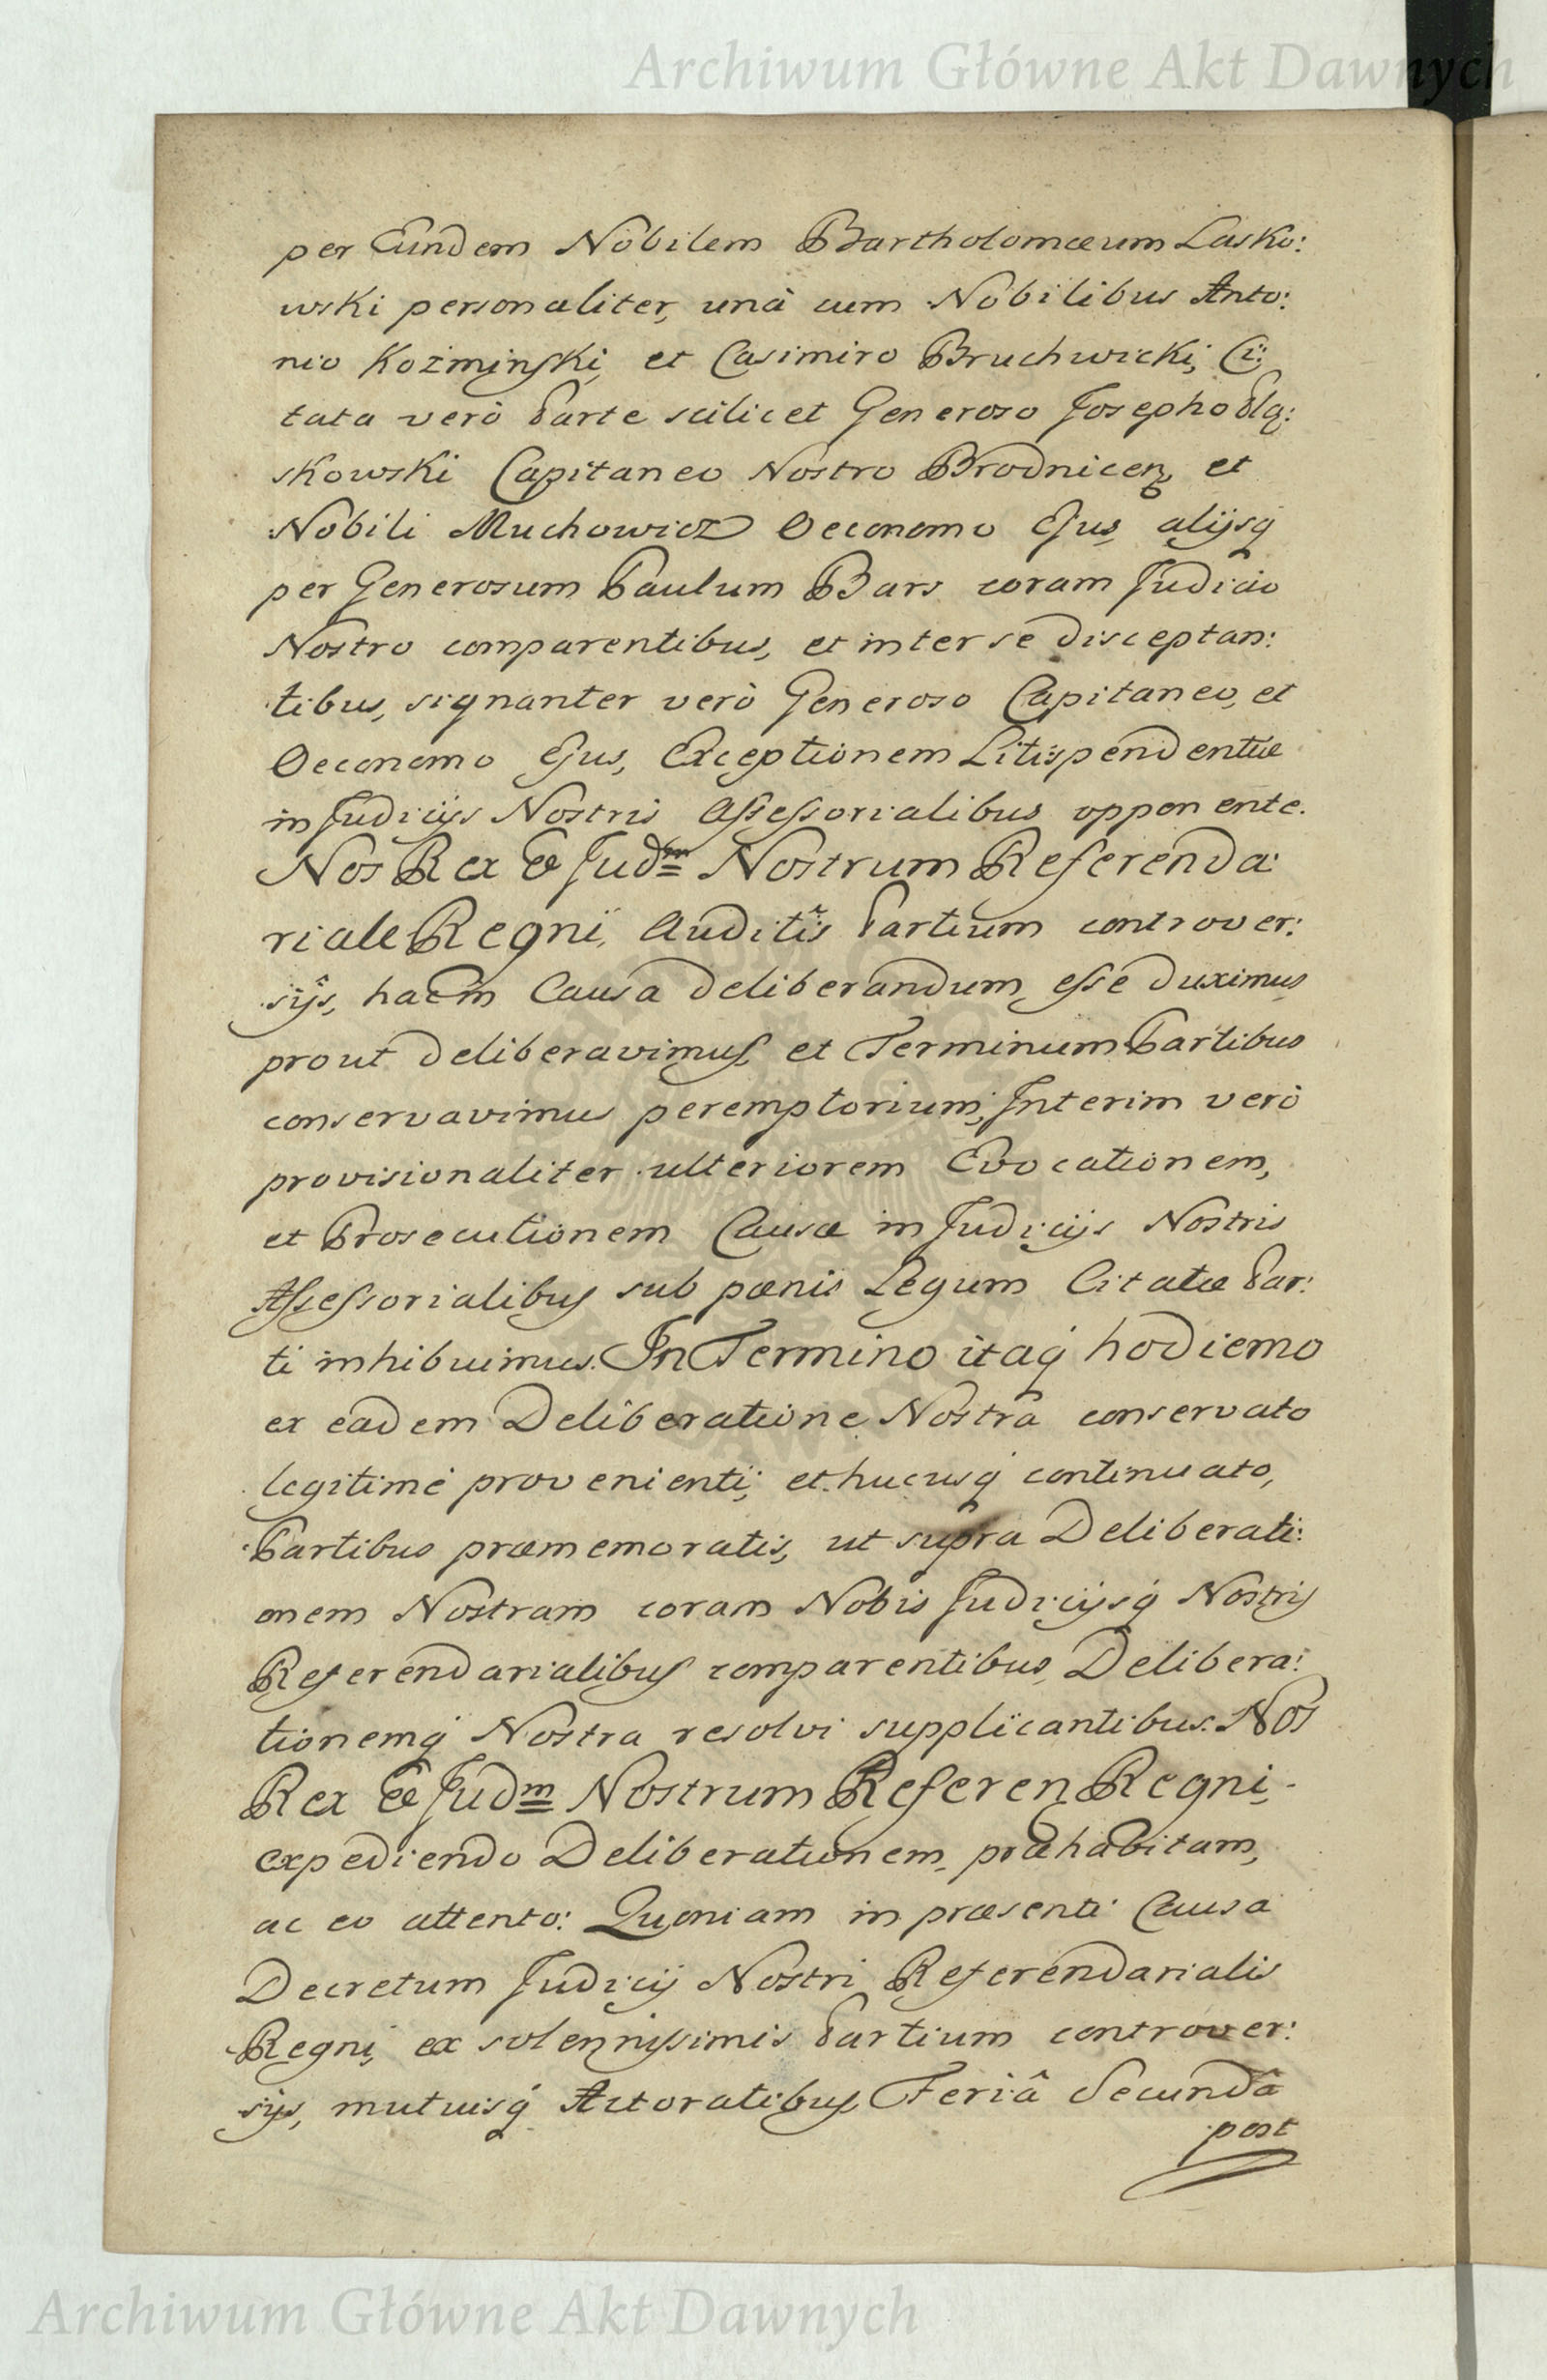 Archiwum Główne Akt Dawnych
per Eundem Nobilem Bartholomæum Lasko:
wski personaliter, unà cum Nobilibus Anto:
nio Koźminski, et Casimiro Bruchwicki, Ci:
tata verò Parte scilicet Generoso Josepho Pla:
skowski Capitaneo Nostro Brodnicen, et
Nobili Muchowicz Oeconomo Ejus, alijsq
per Generosum Paulum Bars coram Judicio
Nostro comparentibus, et inter se disceptan:
tibus, signanter verò Generoso Capitaneo, et
Oeconomo Ejus, Exceptionem Litispendentiæ
in Judicijs Nostris Assessorialibus opponente.
Nos Rex & Judm Nostrum Referenda:
riale Regni, Auditis Partium controver:
sijs, hacin Causa deliberandum esse duximus
prout deliberavimus, et Terminum Partibus
conservavimus peremptorium, Interim verò
provisionaliter ulteriorem Evocationem,
et Prosecutionem Causæ in Judicijs Nostris
Assessorialibus sub pœnis Legum Citatæ Par:
ti inhibuimus. In Termino itaq hodierno
ex eadem Deliberatione Nostrâ conservato
legitimè provenienti, et hucusq continuato,
Partibus præmemoratis, ut supra Deliberati:
onem Nostram coram Nobis Judicijsq Nostris
Referendarialibus comparentibus, Delibera:
tionemq Nostra resolvi supplicantibus. Nos
Rex & Judm Nostrum Referen Regni,
expediendo Deliberationem, præhabitam,
ac eo attento: Quoniam in præsenti Causa
Decretum Judicij Nostri Referendarialis
Regni, ex solennissimis Partium controver:
sijs, mutuisq Actoratibus, Feriâ Secundâ
post
Archiwum Główne Akt Dawnych